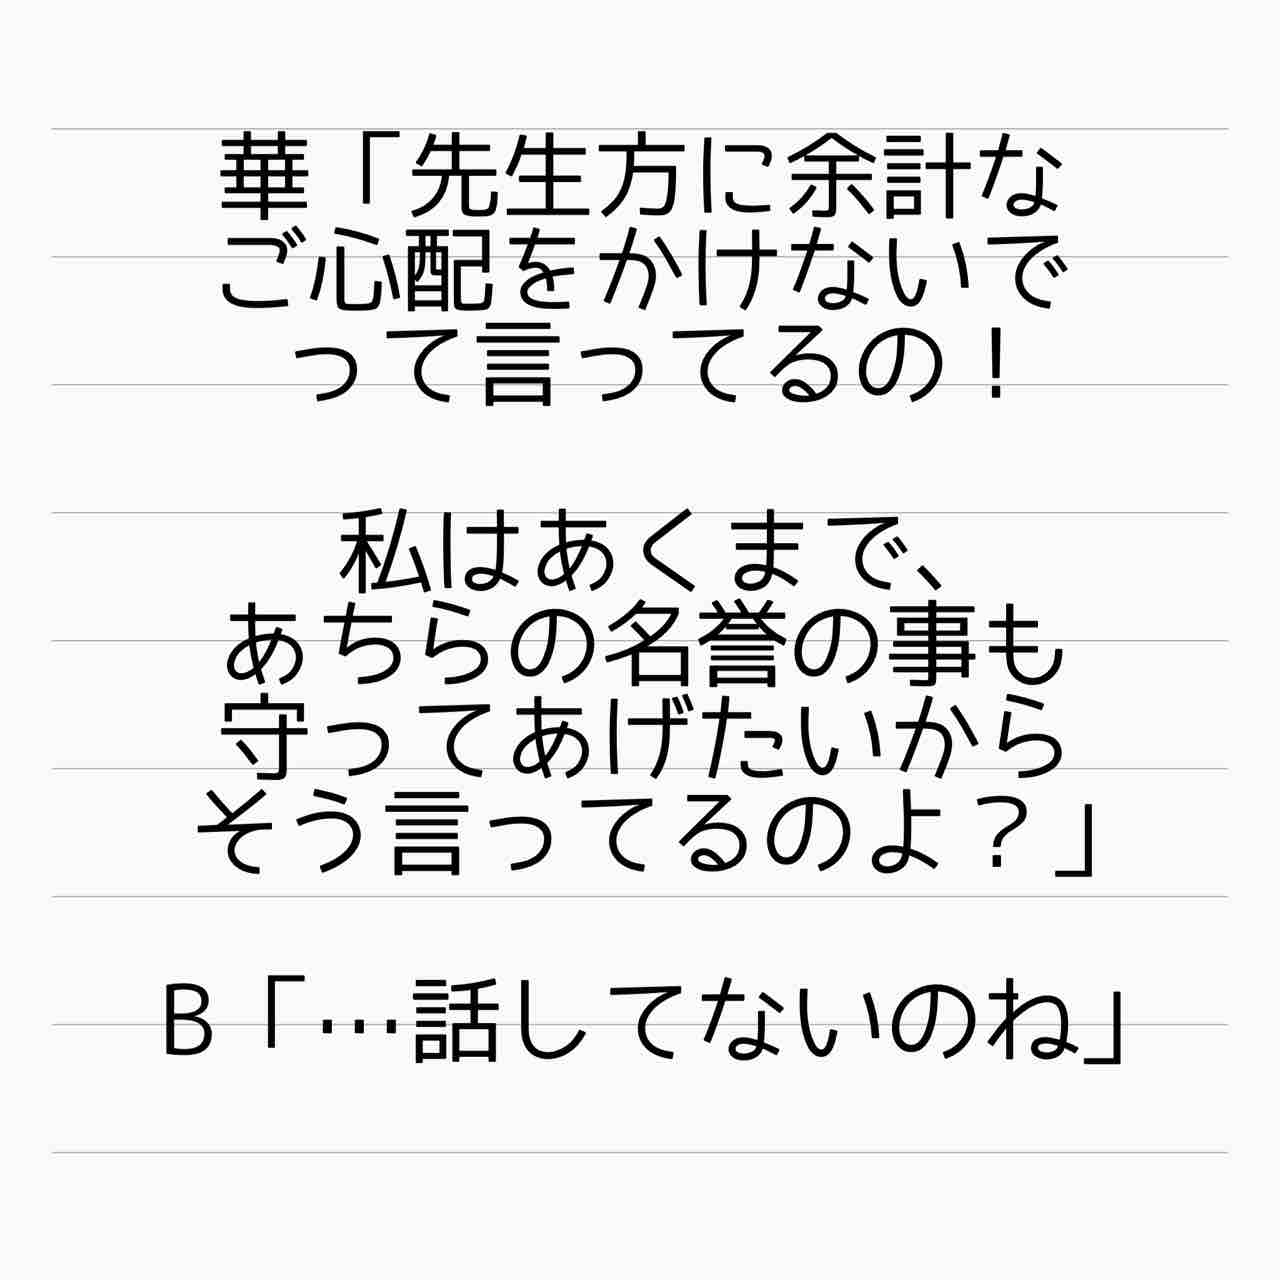 華「先生方に余計な
ご心配をかけないで
って言ってるの！
私はあくまで、
あちらの名誉の事も
守ってあげたいから
そう言ってるのよ？」
B「…話してないのね」